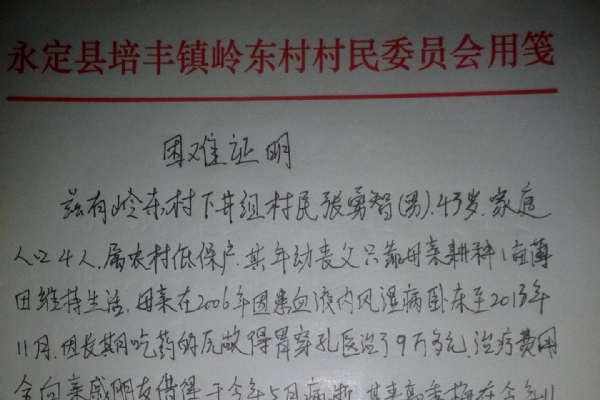 永定县培丰镇岭东村村民委员会用笺
困难证明
兹有岭东村下井组村民张勇智(男).43岁.家庭
人口4人.属农村低保户.其年幼丧父只靠母亲耕种1亩薄
田维持生活.母亲在2006年因患血液内风湿病卧床至2013年
11月.因长期吃药的后做得胃穿孔医治了9万多元.治疗费用
全向亲戚朋友借得于今年5月病逝.其妻高 梅在今年11